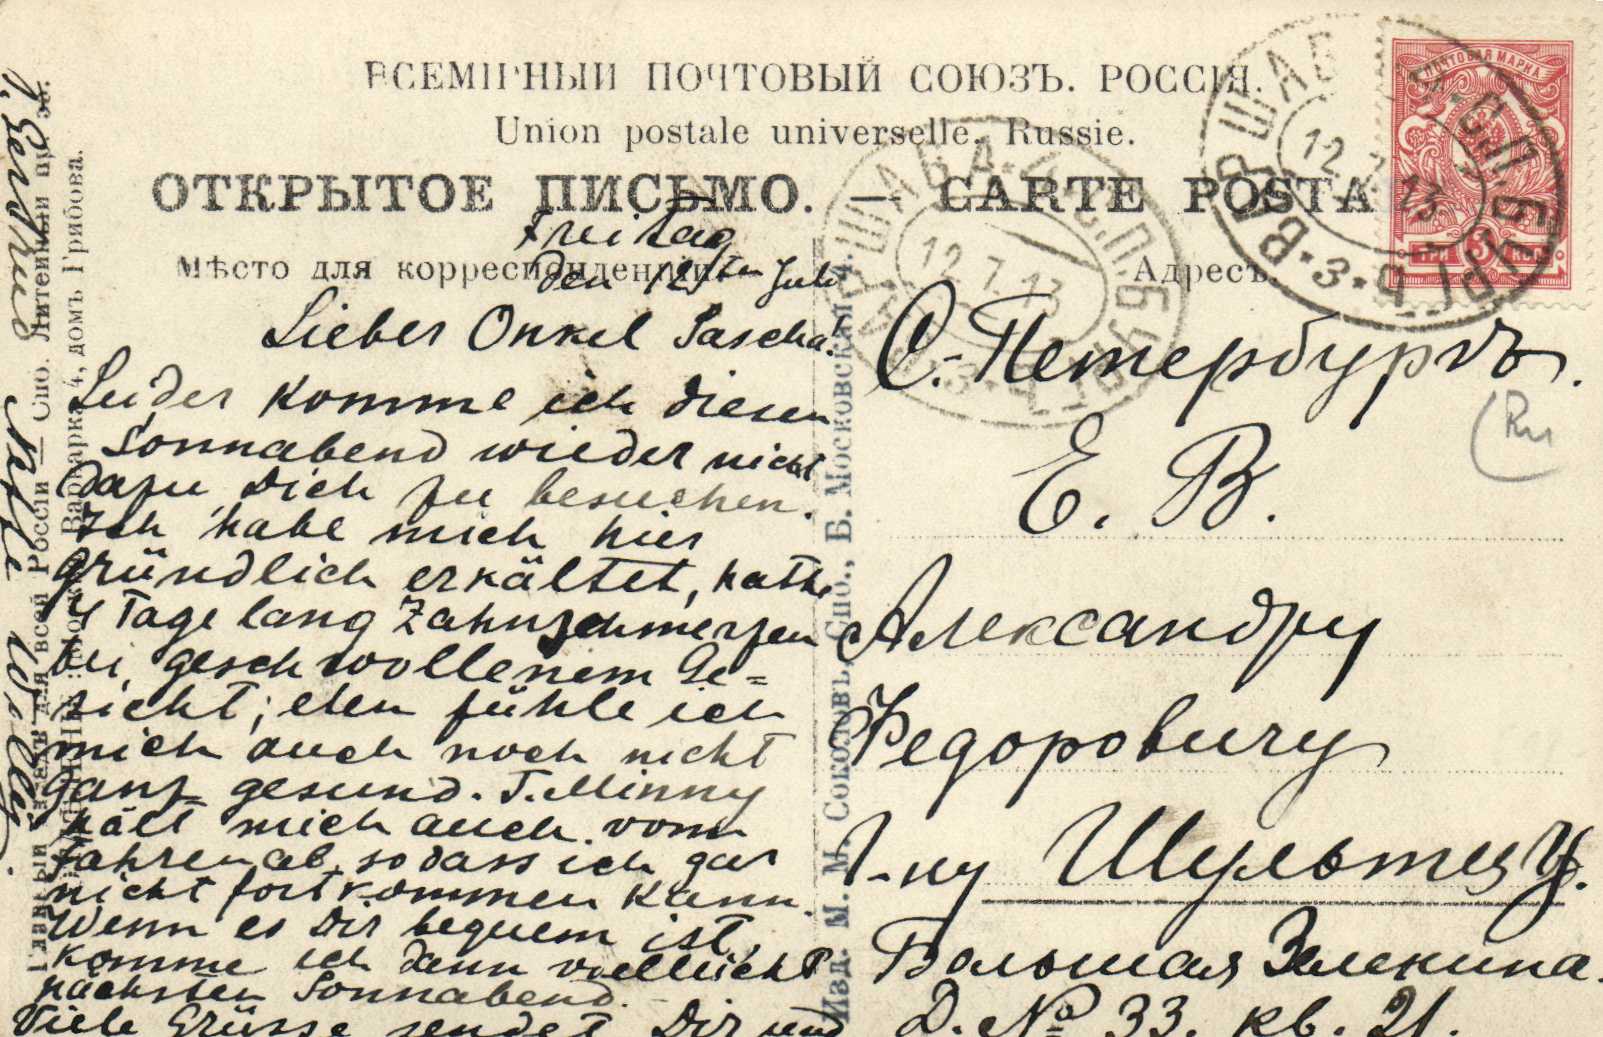 ВСЕМІРНЫЙ ПОЧТОВЫЙ СОЮЗЪ. РОССІЯ.
Union postale universelle. Russie.
ОТКРЫТОЕ ПИСЬМО. — CARTE POSTA
Мѣсто для корреспонденціи
Адресъ.
Freitag
den 12ten Juli
Lieber Onkel Sascha!
Leider komme ich diesen
Sonnabend wieder nicht
dazu Dich zu besuchen.
Ich habe mich hier
gründlich erkältet, hatte
4 Tage lang Zahnschmerzen
bei geschwollenem Ge=
sicht; eben fühle ich
mich auch noch nicht
ganz gesund. T. Minny
hält mich auch vom
Fahren ab, so dass ich gar
nicht fortkommen kann.
Wenn es Dir bequem ist,
komme ich dann vielleicht
nächsten Sonnabend.
Viele Grüsse sendet Dir und
T. Gertrud
С.-Петербургъ.
Е. В.
Александру
Федоровичу
Г-ну Шультцу.
Большая Зеленина.
Д. № 33. кв. 21.
Ru
ПОЧТОВАЯ МАРКА
ТРИ 3 КОП.
ВАРШАВА С.П.БУРГЪ
12.7.13
ВАРШАВ С.П.БУРГЪ
12.7.13
Изд. М. М. Соколовъ, Спб., Б. Московская, 4.
Главный для всей Россіи — Спб. Литейный пр.
Москва, Варварка 4, домъ Грябова.